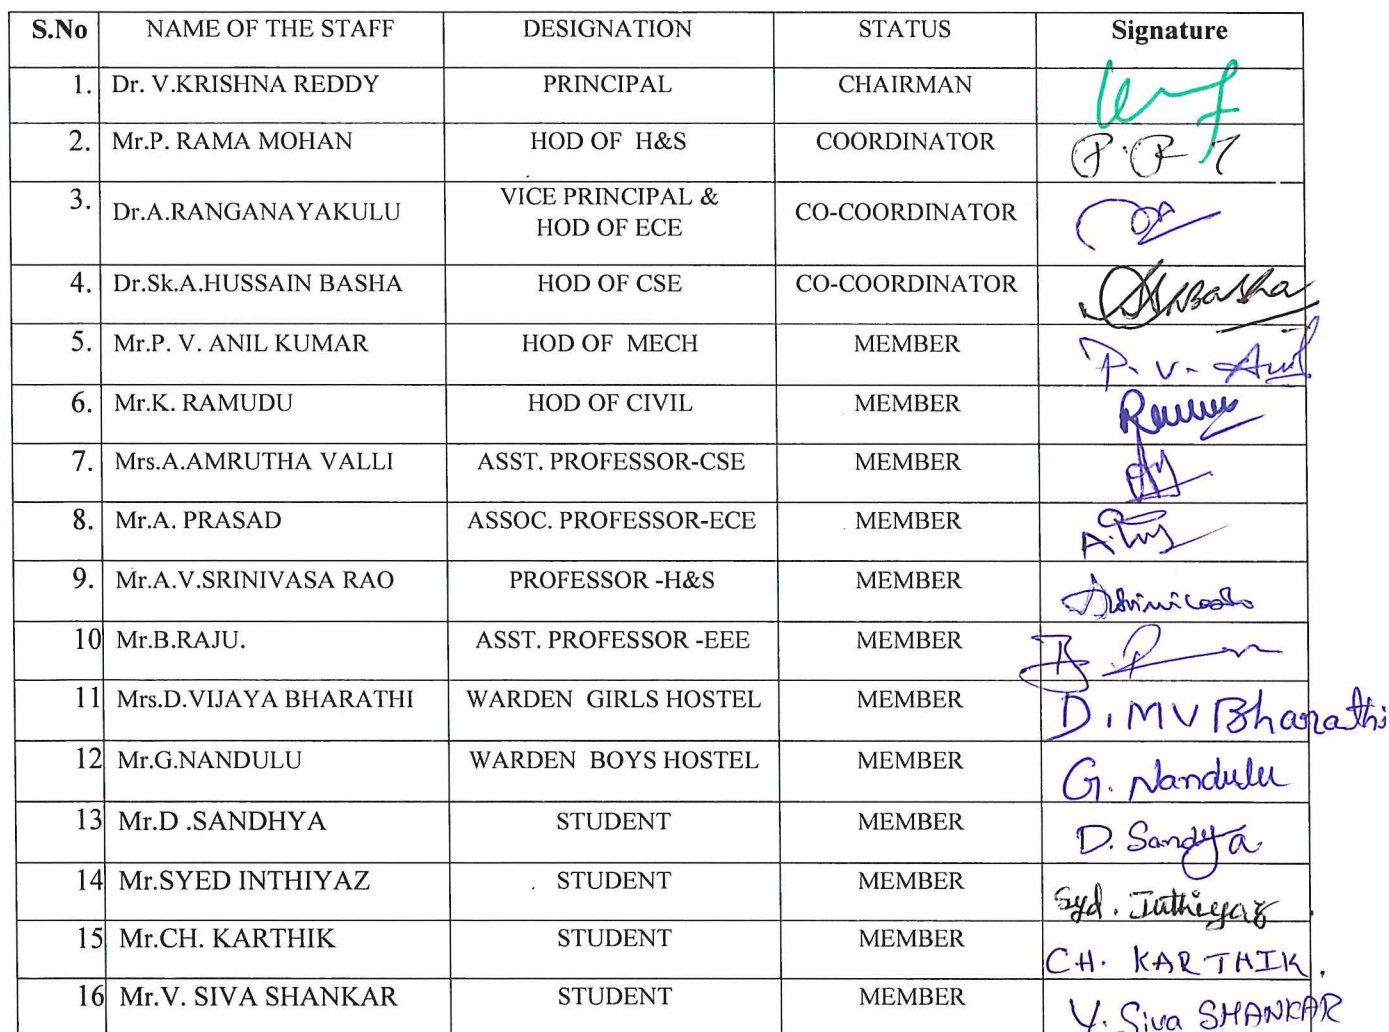 S.No NAME OF THE STAFF DESIGNATION STATUS Signature
1. Dr. V.KRISHNA REDDY PRINCIPAL CHAIRMAN
2. Mr.P. RAMA MOHAN HOD OF H&S COORDINATOR P.R
3. Dr.A.RANGANAYAKULU VICE PRINCIPAL &
HOD OF ECE CO-COORDINATOR
4. Dr.Sk.A.HUSSAIN BASHA HOD OF CSE CO-COORDINATOR
5. Mr.P. V. ANIL KUMAR HOD OF MECH MEMBER P. V. Anil
6. Mr.K. RAMUDU HOD OF CIVIL MEMBER
7. Mrs.A.AMRUTHA VALLI ASST. PROFESSOR-CSE MEMBER
8. Mr.A. PRASAD ASSOC. PROFESSOR-ECE MEMBER
9. Mr.A.V.SRINIVASA RAO PROFESSOR -H&S MEMBER
10 Mr.B.RAJU. ASST. PROFESSOR -EEE MEMBER
11 Mrs.D.VIJAYA BHARATHI WARDEN GIRLS HOSTEL MEMBER D. M V Bharathi
12 Mr.G.NANDULU WARDEN BOYS HOSTEL MEMBER G. Nandulu
13 Mr.D .SANDHYA STUDENT MEMBER D. Sandya
14 Mr.SYED INTHIYAZ STUDENT MEMBER Syd. Inthiyaz
15 Mr.CH. KARTHIK STUDENT MEMBER C.H. KARTHIK.
16 Mr.V. SIVA SHANKAR STUDENT MEMBER V. Siva SHANKAR